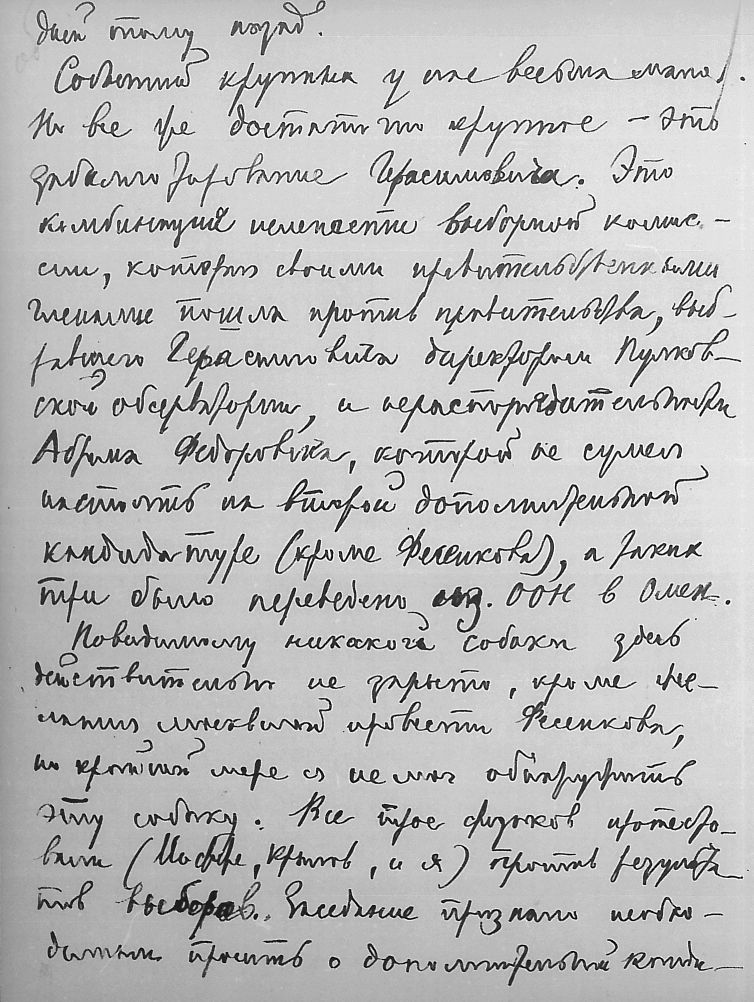 дней тому назад.
Событий крупных у нас весьма мало.
Но все же достаточно крупное — это
забаллотирование Герасимовича. Это
комбинация нелепости выборной комис-
сии, которая своими правительственными
членами пошла против правительства, выб-
равшего Герасимовича директором Пулков-
ской обсерватории, и нераспорядительности
Абрама Федоровича, который не сумел
настоять на второй дополнительной
кандидатуре (кроме Фесенкова), а таких
три было переведено из ООН в Омен.
Повидимому никакой собаки здесь
действительно не зарыто, кроме же-
лания москвичей провести Фесенкова,
по крайней мере я не мог обнаружить
эту собаку. Все трое физиков протесто-
вали (Иоффе, Крылов, и я) против результа-
тов выборов. Заседание признало необхо-
димым просить о дополнительной канди-